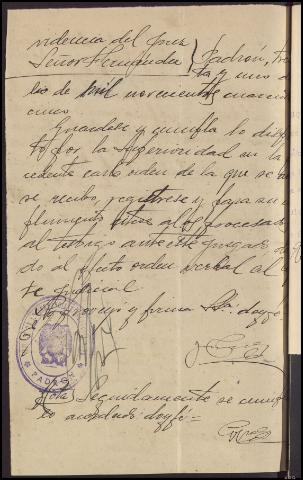 videncia del Juez
Señor Fernández } Padrón, tre
ta y uno de
lio de mil novecientos cuaren
cinco
Guardese y cumpla lo disp
to por la Superioridad en la
cedente carta orden de la que se a
se recibo, registrese y para su
plimiento al procesado
al testigo ante este Juzgado
do al efecto orden verbal al
te judicial
Lo proveyó y firma Sª. doy fe
Nota Seguidamente se cum
lo acordado doy fe =